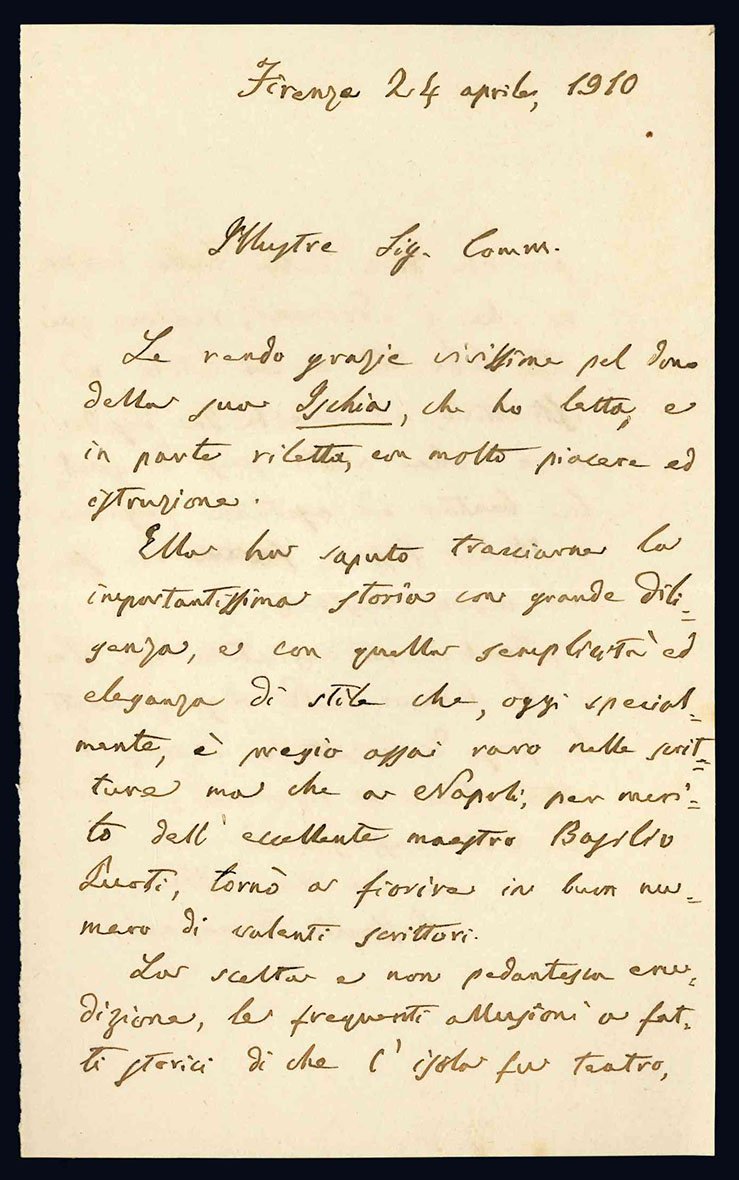 Firenze 24 aprile, 1910
Illustre Sig. Comm.
Le rendo grazie vivissime pel dono
della sua Ischia, che ho letta, e
in parte riletta, con molto piacere ed
istruzione.
Ella ha saputo tracciarne la
importantissima storia con grande dili=
genza, e con quella semplicità ed
eleganza di stile che, oggi special=
mente, è pregio assai raro nelle scrit=
ture ma che a Napoli, per meri=
to dell'eccellente maestro Basilio
Puoti, tornò a fiorire in buon nu=
mero di valenti scrittori.
La scelta e non pedantesca eru=
dizione, le frequenti allusioni a fat=
ti storici di che l'isola fu teatro,